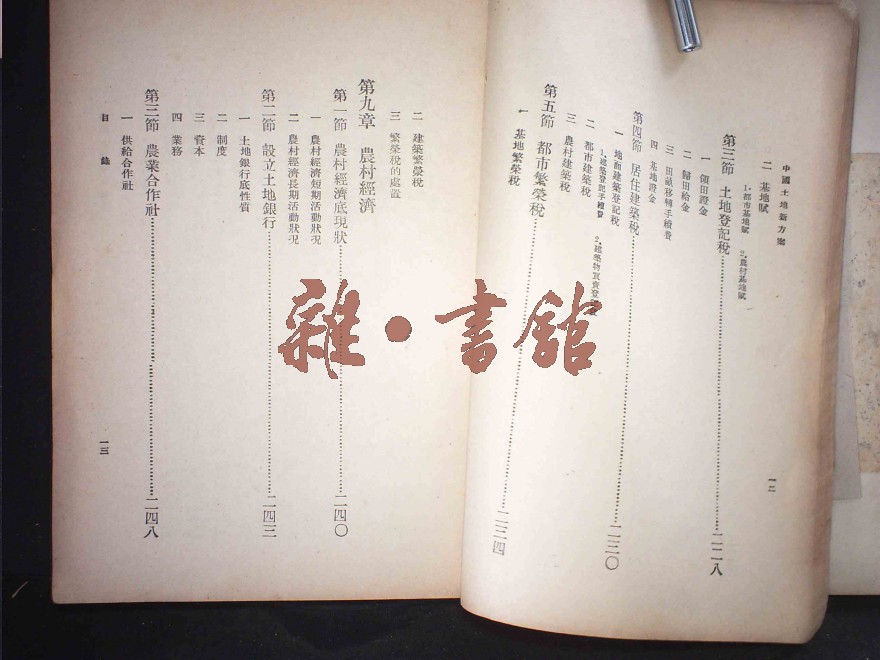 中國土地新方案
一二
二 基地賦
1.都市基地賦 2.農村基地賦
第三節 土地登記稅……二二八
一 領田證金
二 歸田給金
三 田畝移轉手續費
四 基地證金
第四節 居住建築稅……二三〇
一 地面建築登記稅
1.建築登記手續費 2.建築物買賣登
二 都市建築稅
三 農村建築稅
第五節 都市繁榮稅……二三四
一 基地繁榮稅
二 建築繁榮稅
三 繁榮稅的處置
第九章 農村經濟
第一節 農村經濟底現狀……二四〇
一 農村經濟短期活動狀況
二 農村經濟長期活動狀況
第二節 設立土地銀行……二四三
一 土地銀行底性質
二 制度
三 資本
四 業務
第三節 農業合作社……二四八
一 供給合作社
目錄
一三
雜·書館